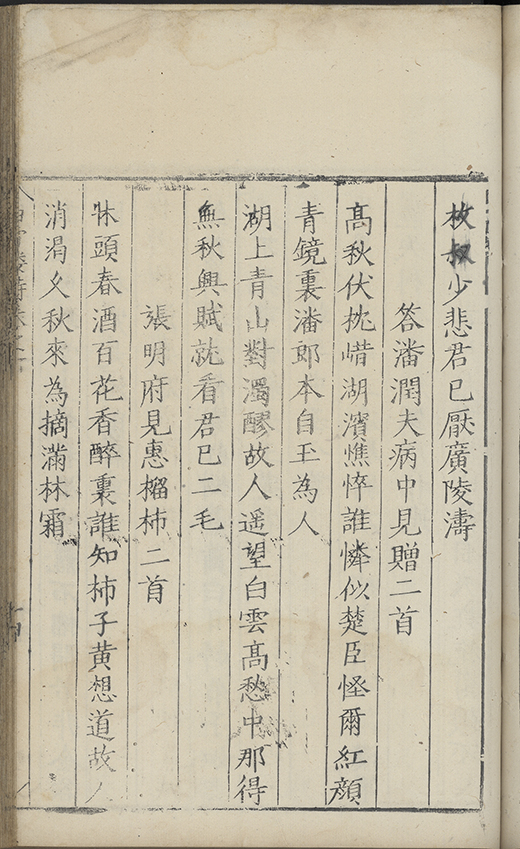 枚叔少悲君已厭廣陵濤
答潘潤夫病中見贈二首
高秋伏枕嵴湖濱憔悴誰憐似楚臣怪爾紅顏
青鏡裏潘郎本自玉為人
湖上青山對濁醪故人遥望白雲高愁中那得
無秋興賦就看君已二毛
張明府見惠橊柿二首
牀頭春酒百花香醉裏誰知柿子黄想道故人
消渴久秋來為摘滿林霜